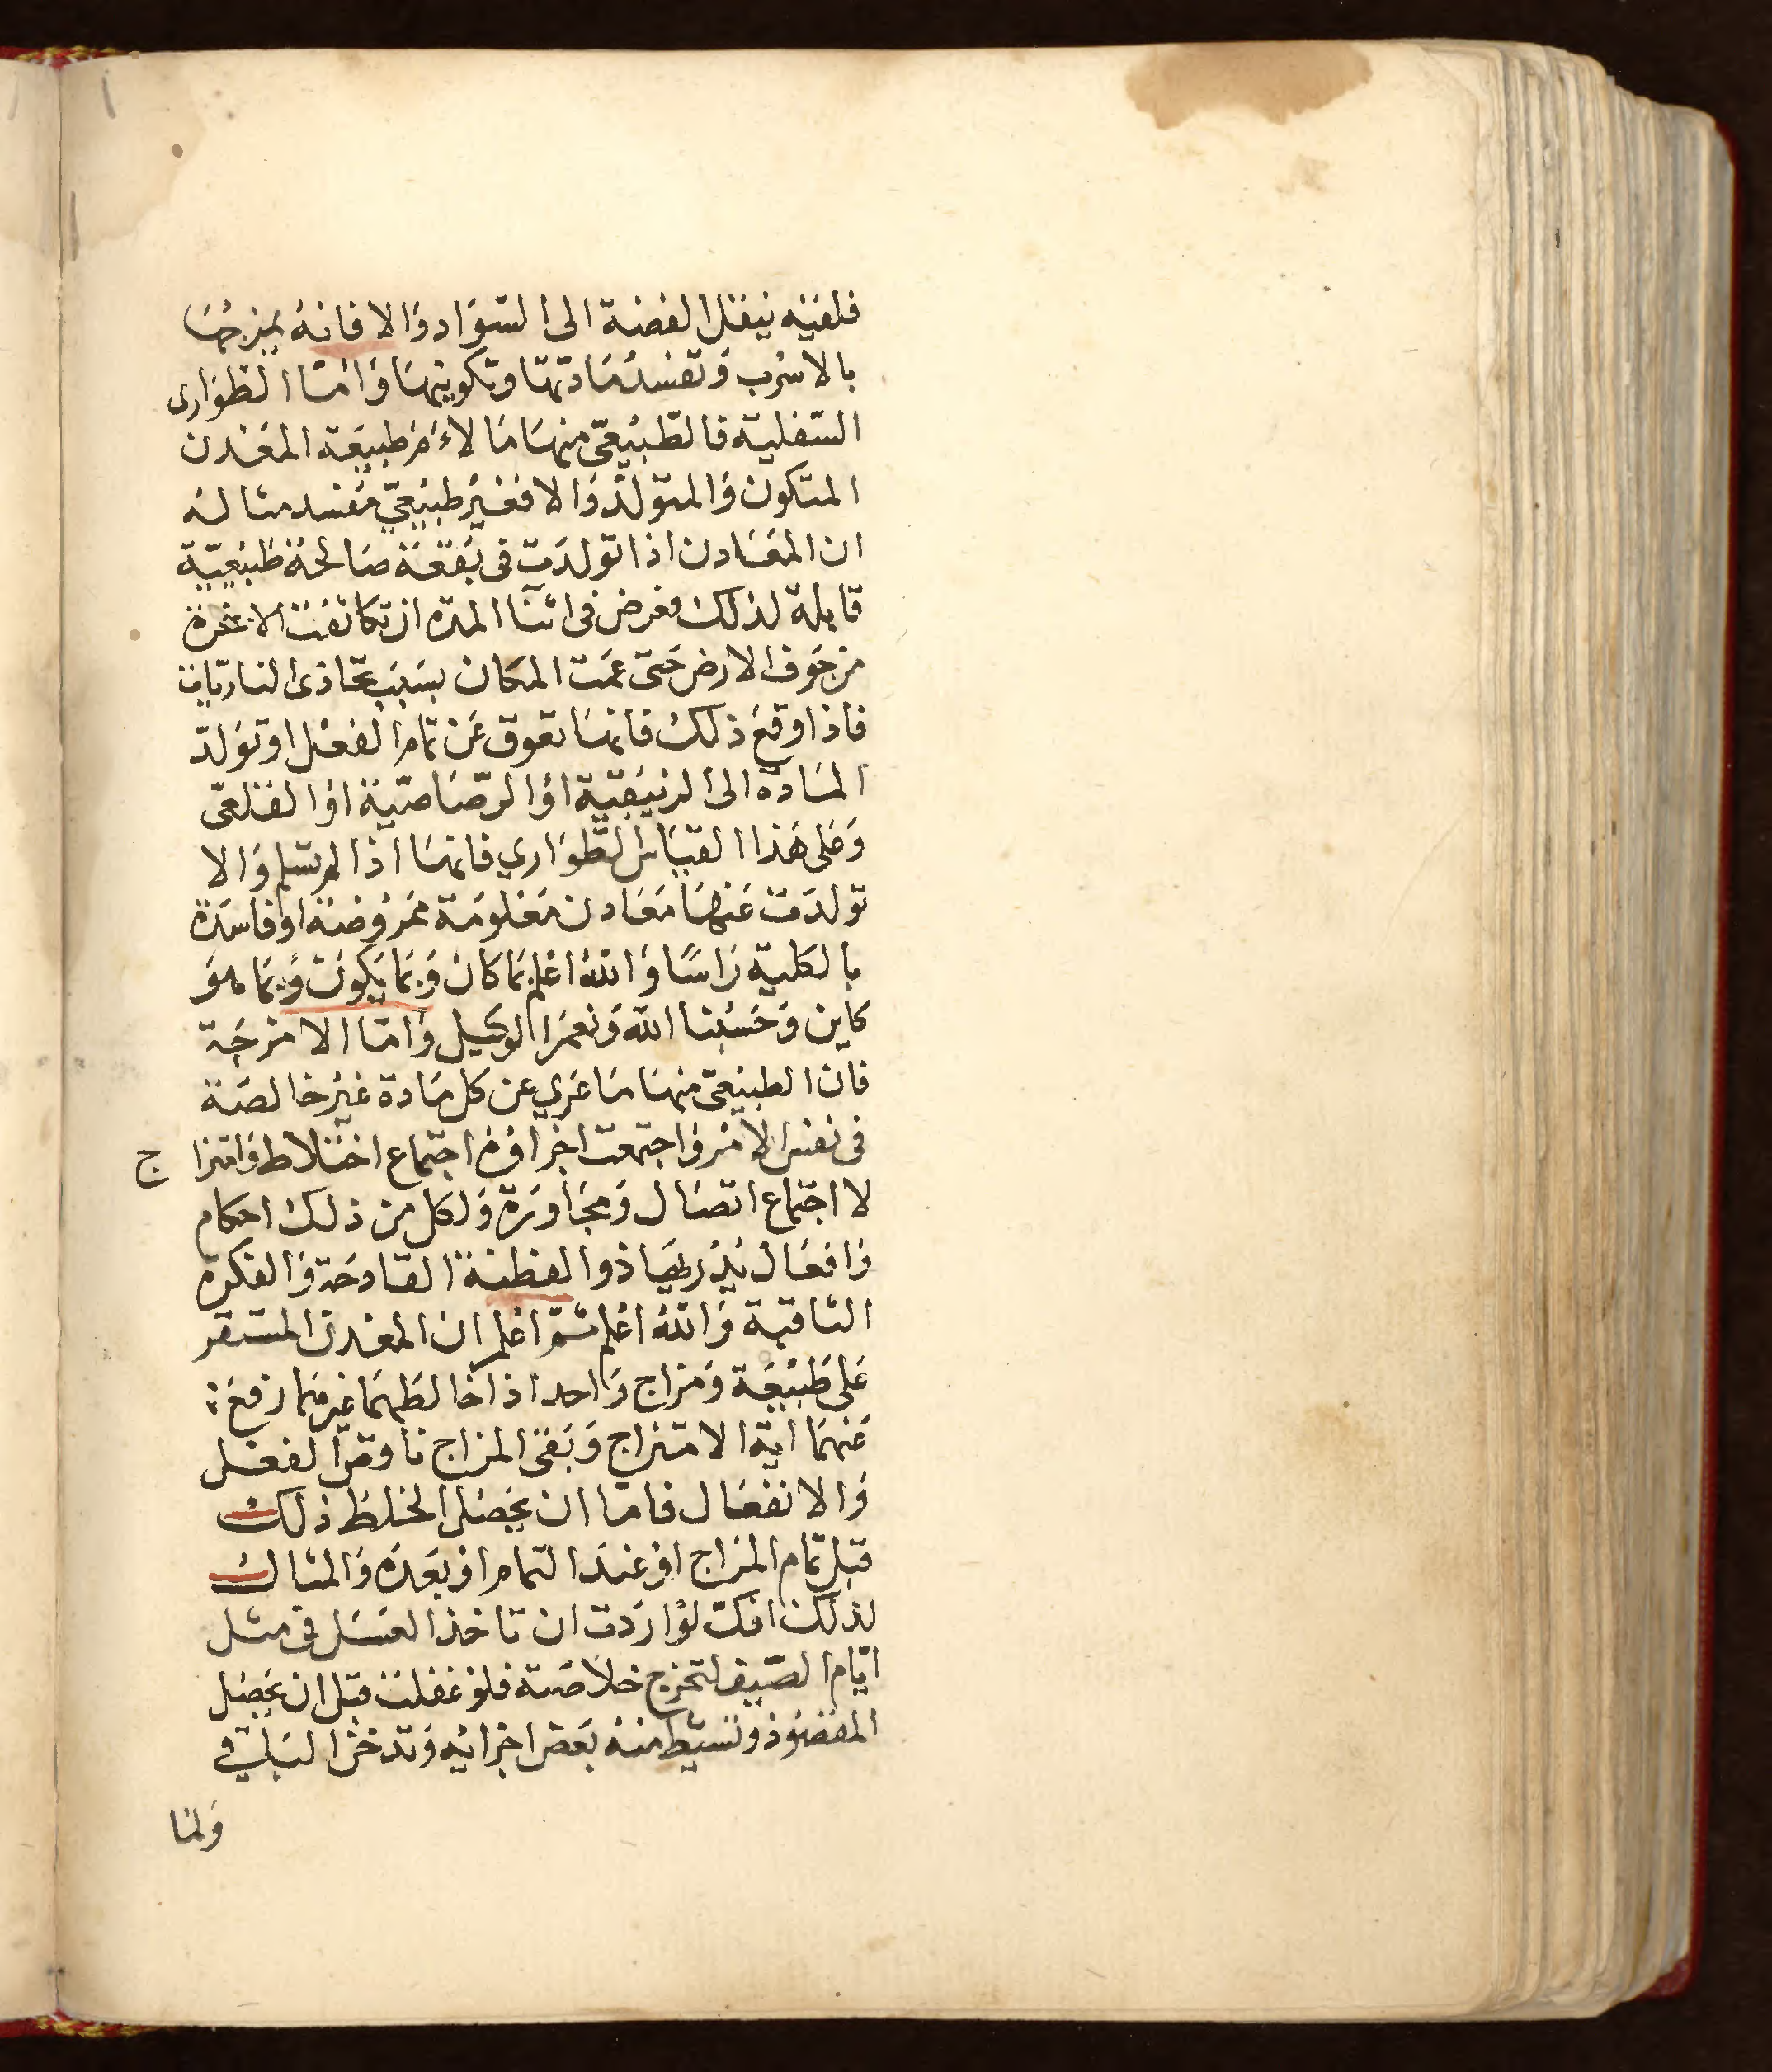 فلغيه ينقل الفضة الى السواد والا فانهُ يمزجُهَا
بالاسْرب وَتفسدُ مَادتهَا وتكوينهَا وَامّا الطوَارى
السّفليه فالطّبيْعىّ منهَا مَا لاءَمَ طبيعَة المعْدن
المتكون وَالمتولّد وَالا فغيْر طبيْعيّ مُفسد مثاله
ان المعَادن اذا تولدَت فى بقعَة صَالحة طبيْعيّة
قابلة لذلك فعرض فى اثنآ المده ان تكاثفت الابخرة
من جَوف الارض حَتى عمّت المكان بسَبَب تحَاذى الناريات
فاذا وقعَ ذلك فانهَا تعوق عَن تمام الفعْل او تولّد
المَادة الى الزيبَقية اوْ الرّصَاصّية اوْ القلعى
وَعَلى هَذا القيَاس الطّوَاري فانهَا اذا لم تسَلم وَالا
تولدَت عَنهَا مَعَادن مَعْلومَة ممَروُضة اوْ فاسَدة
بالكلية رَاسًا وَاللهُ اعْلم بمَا كان وَبمَا يَكونُ وَبمَا هوَ
كاين وَحَسْبنا الله وَنعمَ الوكيل وَامّا الامزجَة
فان الطبيْعىّ منهَا مَا عَرِي عن كل مَادة غيْر خالصَة
فى نفس الامْر وَاجتمعت اجزاؤهُ اجتماع اختلاط وَامتزا ج
لا اجتماع اتصَال وَمجَاوَرة وَلكل من ذلك احكام
وَافعَال يدْريهَا ذوا الفطنة القادحَة وَالفكره
الثاقبة وَاللهُ اعْلم ثمّ اعْلم ان المعْدن المستقر
عَلى طَبيْعَة وَمزاج وَاحد اذا خالطهمَا غيرهمَا رفعَ
عَنهمَا اية الامتزاج وَبَقى المزاج ناقص الفعْل
وَالانفعَال فامّا ان يحَصُل الخلط ذلك
قبل تمام المزاج اوْ عندَ التمام اوْ بعَدَه وَالمثال
لذلك انك لوْ ارَدت ان تاخذ العسَل فى مثل
ايّام الصّيف لتخرج خلاصَته فلوْ غفلت قبل ان يحَصُل
المقصُوْد ونسَيْط منهُ بعَض اجزائه وَتدخل البَلى في
وَلمّا